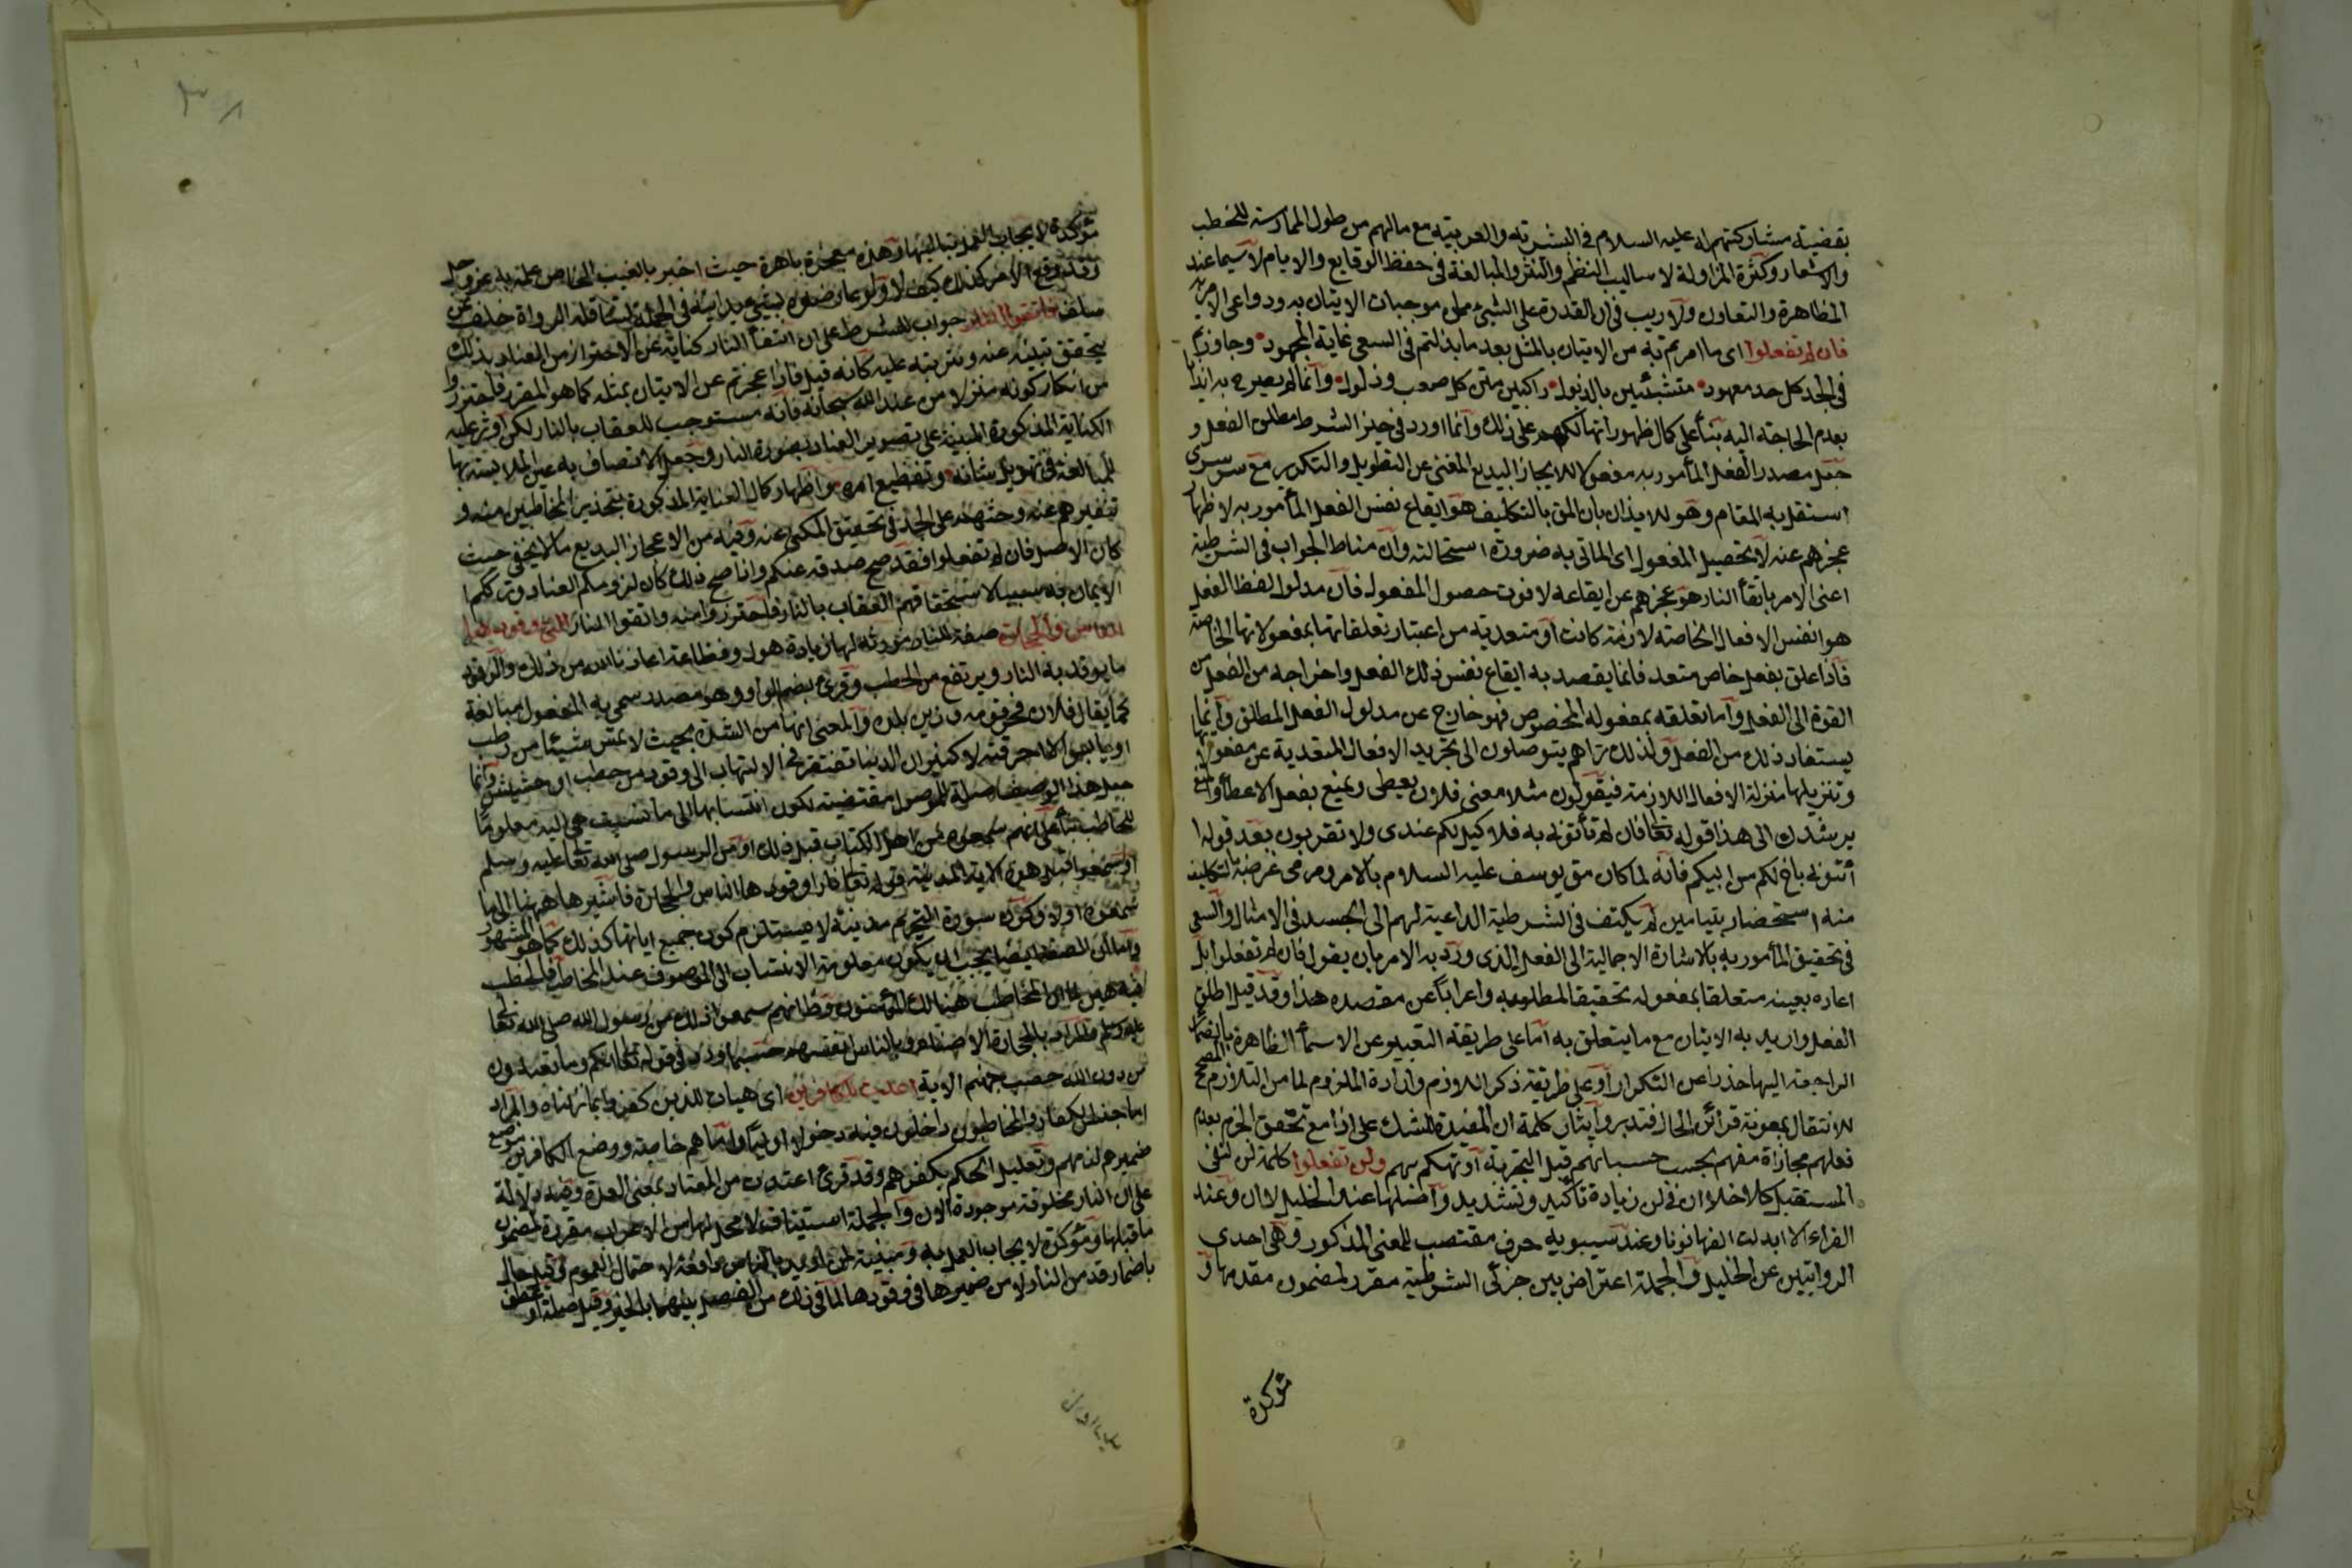 بقضية مشاركتهم له عليه السلام في البشرية والعربية مع مالهم من طول الممارسة للخطب
والاشعار وكثرة المزاولة لاساليب النظم والنثر والمبالغة في حفظ الوقايع والايام لا سيما عند
المظاهرة والتعاون ولا ريب في ان القدرة على الشيئ من موجبات الاتيان به ودواعي الامر به
فان لم تفعلوا اى ما امرتم به من الاتيان بالمثل بعد ما بذلتم في السعى غاية المجهود وجاوزتم
في الجد كل حد معهود متشبثين بالذيول راكبين متن كل صعب وذلول وانما لم يصرح به ايذانا
بعدم الحاجة اليه بنأ على كمال ظهور تهالكهم على ذلك وانما اورد في حيز الشرط مطلق الفعل و
جعل مصدر الفعل المأمور به مفعولا للايجاز البديع المغنى عن التطويل والتكرير مع سر سرى
استقل به المقام وهو للايذان بان المق بالتكليف هو ايقاع نفس الفعل المأمور به لاظهار
عجزهم عنه لا تحصيل المفعول اى المأتى به ضرورة استحالته وان مناط الجواب في الشرطية
اعنى الامر باتقأ النار هو عجزهم عن ايقاعه لا فوت حصول المفعول فان مدلول لفظ الفعل
هو انفس الافعال الخاصة لازمة كانت او متعدية من اعتبار تعلقاتها بمفعولاتها الخاصة
فاذا علق بفعل خاص متعد فانما يقصد به ايقاع نفس ذلك الفعل واخراجه من
القوة الى الفعل واما تعلقه بمفعوله المخصوص فهو خارج عن مدلول الفعل المطلق وانما
يستفاد ذلك من الفعل ولذلك تراهم يتوصلون الى تجريد الافعال المتعدية عن مفعولاتها
وتنزيلها منزلة الافعال اللازمة فيقولون مثلا معنى فلان يعطى ويمنع يفعل الاعطأ والمنع
يرشدك الى هذا قوله تعالى فان لم تأتونى به فلا كيل لكم عندى ولا تقربون بعد قوله
أتونى باخ لكم من ابيكم فانه لما كان مق يوسف عليه السلام بالامر ومرمى غرضه بالتكليف
منه استحضار بنيامين لم يكتف في الشرطية الداعية لهم الى الجد في الامتثال والسعى
في تحقيق المأمور به بالاشارة الاجمالية الى الفعل الذى ورد به الامر بان يقول فان لم تفعلوا بل
اعاده بعينه متعلقا بمفعوله تحقيقا لمطلوبه واعرابا عن مقصده هذا وقد قيل اطلق
الفعل واريد به الاتيان مع ما يتعلق به اما على طريقة التعبير عن الاسمأ الظاهرة بالضمائر
الراجعة اليها حذرا عن التكرار او على طريقة ذكر اللازم وارادة الملزوم لما من التلازم المصحح
للانتقال بمعونة قرائن الحال فتدبر وايثار كلمة ان المفيدة للشك على اذا مع تحقق الجزم بعدم
فعلهم مجاراة معهم بحسب حسبانهم قبل التجربة او تهكم بهم ولن تفعلوا كلمة لن لنفى
المستقبل كلا خلا ان في لن زيادة تأكيد وتشديد واصلها عند الخليل لا ان وعند
الفراء لا ابدلت الفها نونا وعند سيبويه حرف مقتضب للمعنى المذكور وهى احدى
الروايتين عن الخليل والجملة اعتراض بين جزئى الشرطية مقرر لمضمون مقدمها و
مؤكدة
مؤكدة لايجاب العمل بتاليها وهذه معجزة باهرة حيث اخبر بالغيب الخاص علمه به عز وجل
وقد وقع الامر كذلك كيف لا ولو عارضوه بشئ يدانيه في الجملة لتناقله الرواة خلف عن
سلف فاتقوا النار جواب للشرط على ان اتقأ النار كناية عن الاحتراز من العناد بذلك
يتحقق تبينه عنه وترتبه عليه كانه قيل فاذا عجزتم عن الاتيان بمثله كما هو المقرر فاحترزوا
من انكار كونه منزلا من عند الله سبحانه فانه مستوجب للعقاب بالنار لكن اوثر عليه
الكناية المذكورة المبنية على تصوير العناد بصورة النار وجعل الاتصاف به عين الملابسة بها
للمبالغة في تهويل شانه وتفظيع امره واظهار كمال العناية المذكورة بتحذير المخاطبين منه و
تنفيرهم عنه وحثهم على الجد في تحقيق المكنى عنه وفيه من الاعجاز البديع ما لا يخفى حيث
كان الاصل فان لم تفعلوا فقد صح صدقه عنكم واذا صح ذلك كان لزومكم العناد وترككم
الايمان به سببا لاستحقاقهم العقاب بالنار فاحترزوا منه واتقوا النار التى وقودها
الناس والحجارة صفة للنار مورثة لها زيادة هول وفظاعة اعاذنا الله من ذلك والوقود
ما يوقد به النار ويرتفع من الحطب وقرئ بضم الواو وهو مصدر سمى به المفعول مبالغة
كما يقال فلان فخر قومه وزين بلده والمعنى انها من الشدة بحيث لا تمس شيئا من رطب
او يابس الا احرقته لا كنيران الدنيا تفتقر في الالتهاب الى وقود من حطب او حشيش وانما
جعل هذا الوصف صلة للموصول مقتضية لكون انتسابها الى ما نسبت هى اليه معلوما
للمخاطب بنأ على انهم سمعوه من اهل الكتاب قبل ذلك او من الرسول صلى الله تعالى عليه وسلم
او سمعوا قبل هذه الاية المدنية قوله تعالى نارا وقودها الناس والحجارة فاشير ههنا الى ما
سمعوه اولا وكون سورة التحريم مدنية لا يستلزم كون جميع اياتها كذلك كما هو المشهور
واما ان الصفة ايضا يجب ان يكون معلومة الانتساب الى الموصوف عند المخاطب فالخطب
فيه هين لما ان المخاطب هنالك المؤمنون وظ انهم سمعوا ذلك من رسول الله صلى الله تعالى
عليه وسلم والمراد بالحجارة الاصنام وبالناس انفسهم حسبما ورد في قوله تعالى انكم وما تعبدون
من دون الله حصب جهنم الاية اعدت للكافرين اى هيأت للذين كفروا بما نزلناه والمراد
اما جنس الكفار والمخاطبون داخلون فيه دخولا اوليا واما هم خاصة ووضع الكافرين موضع
ضميرهم لذمهم وتعليل الحكم بكفرهم وقد قرئ اعتدت من العتاد بمعنى العدة وفيه دلالة
على ان النار مخلوقة موجودة الان والجملة استيناف لا محل لها من الاعراب مقررة لمضمون
ما قبلها ومؤكدة لايجاب العمل به ومبينة لمن اريد بالناس دافعة لاحتمال العموم وقيل حال
باضمار قد من النار لا من ضميرها في وقودها لما في ذلك من الفصل بينهما بالخبر وقيل صلة او عطف